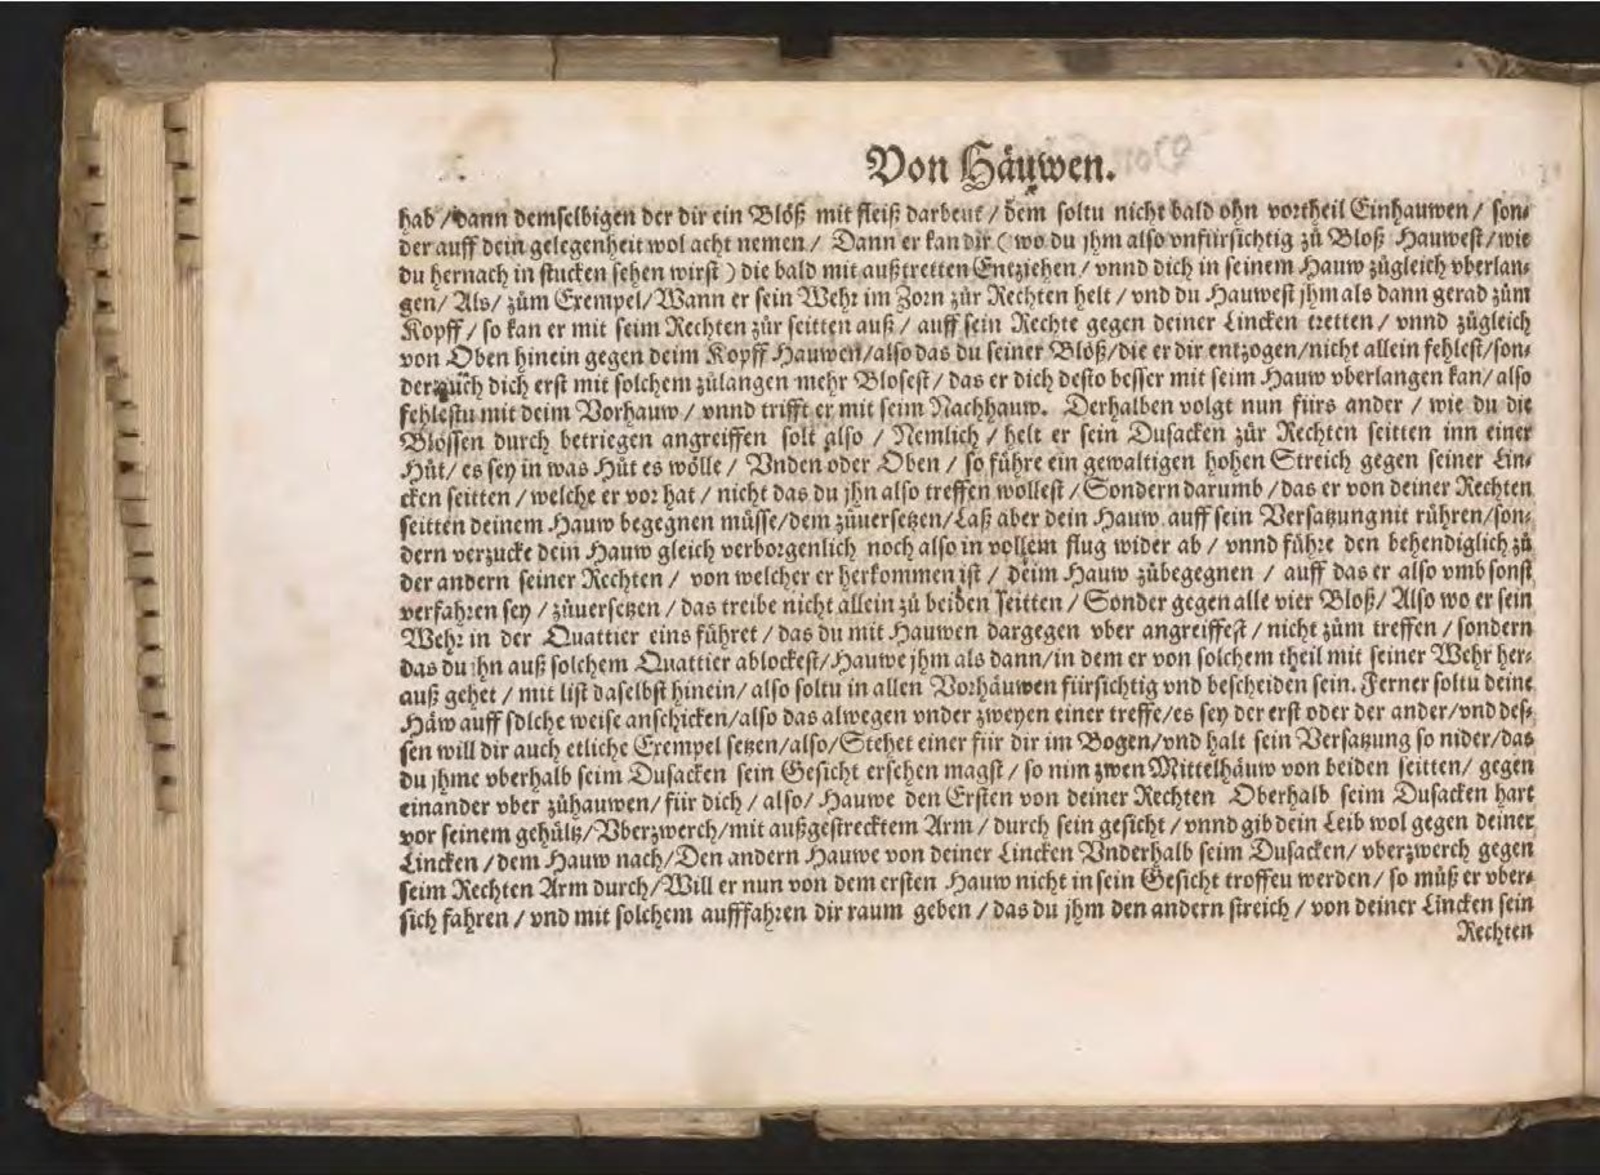 Von Häuwen.
hab / dann demselbigen der dir ein Blöß mit fleiß darbeut / dem soltu nicht bald ohn vortheil Einhauwen / son-
der auff dein gelegenheit wol acht nemen / Dann er kan dir ( wo du jhm also vnfürsichtig zů Bloß Hauwest / wie
du hernach in stucken sehen wirst ) die bald mit außtretten Entziehen / vnnd dich in seinem Hauw zůgleich vberlan-
gen / Als / zům Exempel / Wann er sein Wehr im Zorn zůr Rechten helt / vnd du Hauwest jhm als dann gerad zům
Kopff / so kan er mit seim Rechten zůr seitten auß / auff sein Rechte gegen deiner Lincken tretten / vnnd zůgleich
von Oben hinein gegen deim Kopff Hauwen / also das du seiner Blöß / die er dir entzogen / nicht allein fehlest / son-
der auch dich erst mit solchem zůlangen mehr Blosest / das er dich desto besser mit seim Hauw vberlangen kan / also
fehlestu mit deim Vorhauw / vnnd trifft er mit seim Nachhauw. Derhalben volgt nun fürs ander / wie du die
Blössen durch betriegen angreiffen solt also / Nemlich / helt er sein Dusacken zůr Rechten seitten inn einer
Hůt / es sey in was Hůt es wölle / Vnden oder Oben / so führe ein gewaltigen hohen Streich gegen seiner Lin-
cken seitten / welche er vor hat / nicht das du jhn also treffen wollest / Sondern darumb / das er von deiner Rechten
seitten deinem Hauw begegnen můsse / dem zůuersetzen / Laß aber dein Hauw auff sein Versatzung nit rühren / son-
dern verzucke dein Hauw gleich verborgenlich noch also in vollem flug wider ab / vnnd führe den behendiglich zů
der andern seiner Rechten / von welcher er herkommen ist / deim Hauw zůbegegnen / auff das er also vmb sonst
verfahren sey / zůuersetzen / das treibe nicht allein zů beiden seitten / Sonder gegen alle vier Bloß / Also wo er sein
Wehr in der Quattier eins führet / das du mit Hauwen dargegen vber angreiffest / nicht zům treffen / sondern
das du jhn auß solchem Quattier ablockest / Hauwe jhm als dann / in dem er von solchem theil mit seiner Wehr her-
auß gehet / mit list daselbst hinein / also soltu in allen Vorhäuwen fürsichtig vnd bescheiden sein. Ferner soltu deine
Häw auff solche weise anschicken / also das alwegen vnder zweyen einer treffe / es sey der erst oder der ander / vnd des-
sen will dir auch etliche Exempel setzen / also / Stehet einer für dir im Bogen / vnd halt sein Versatzung so nider / das
du jhme vberhalb seim Dusacken sein Gesicht ersehen magst / so nim zwen Mittelhäuw von beiden seitten / gegen
einander vber zůhauwen / für dich / also / Hauwe den Ersten von deiner Rechten Oberhalb seim Dusacken hart
vor seinem gehültz / Vberzwerch / mit außgestrecktem Arm / durch sein gesicht / vnnd gib dein Leib wol gegen deiner
Lincken / dem Hauw nach / Den andern Hauwe von deiner Lincken Vnderhalb seim Dusacken / vberzwerch gegen
seim Rechten Arm durch / Will er nun von dem ersten Hauw nicht in sein Gesicht troffeu werden / so můß er vber-
sich fahren / vnd mit solchem aufffahren dir raum geben / das du jhm den andern streich / von deiner Lincken sein
Rechten